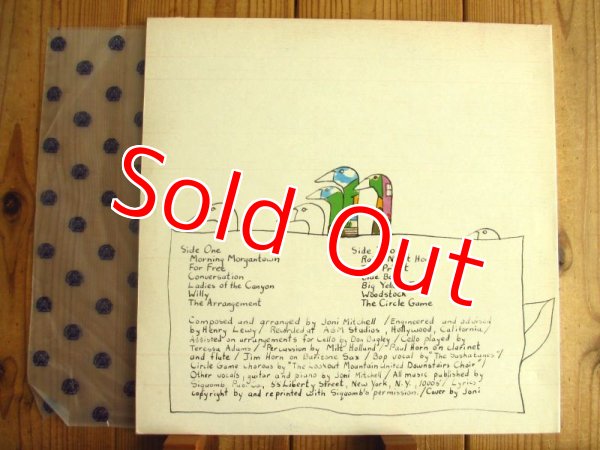 Sold Out
Side One
Morning Morgantown
For Free
Conversation
Ladies of the Canyon
Willy
The Arrangement
Side
Big Yel
Woodstock
The Circle Game
Composed and arranged by Joni Mitchell / Engineered and advised
by Henry Lewy / Recorded at A&M Studios, Hollywood, California /
Assisted on arrangements for Cello by Don Bagley / Cello played by
Teressa Adams / Percussion by Milt Holland / Paul Horn on Clarinet
and flute / Jim Horn on Baritone Sax / Bop vocal by "The Saskatunes" /
Circle Game Chorous by "The Lookout Mountain United Downstairs Choir" /
Other vocals, guitar and piano by Joni Mitchell / All music published by
Siquomb Pub. Co, 55 Liberty Street, New York, N.Y., 10005 / Lyrics
copyright by and reprinted with Siquomb's permission. / Cover by Joni